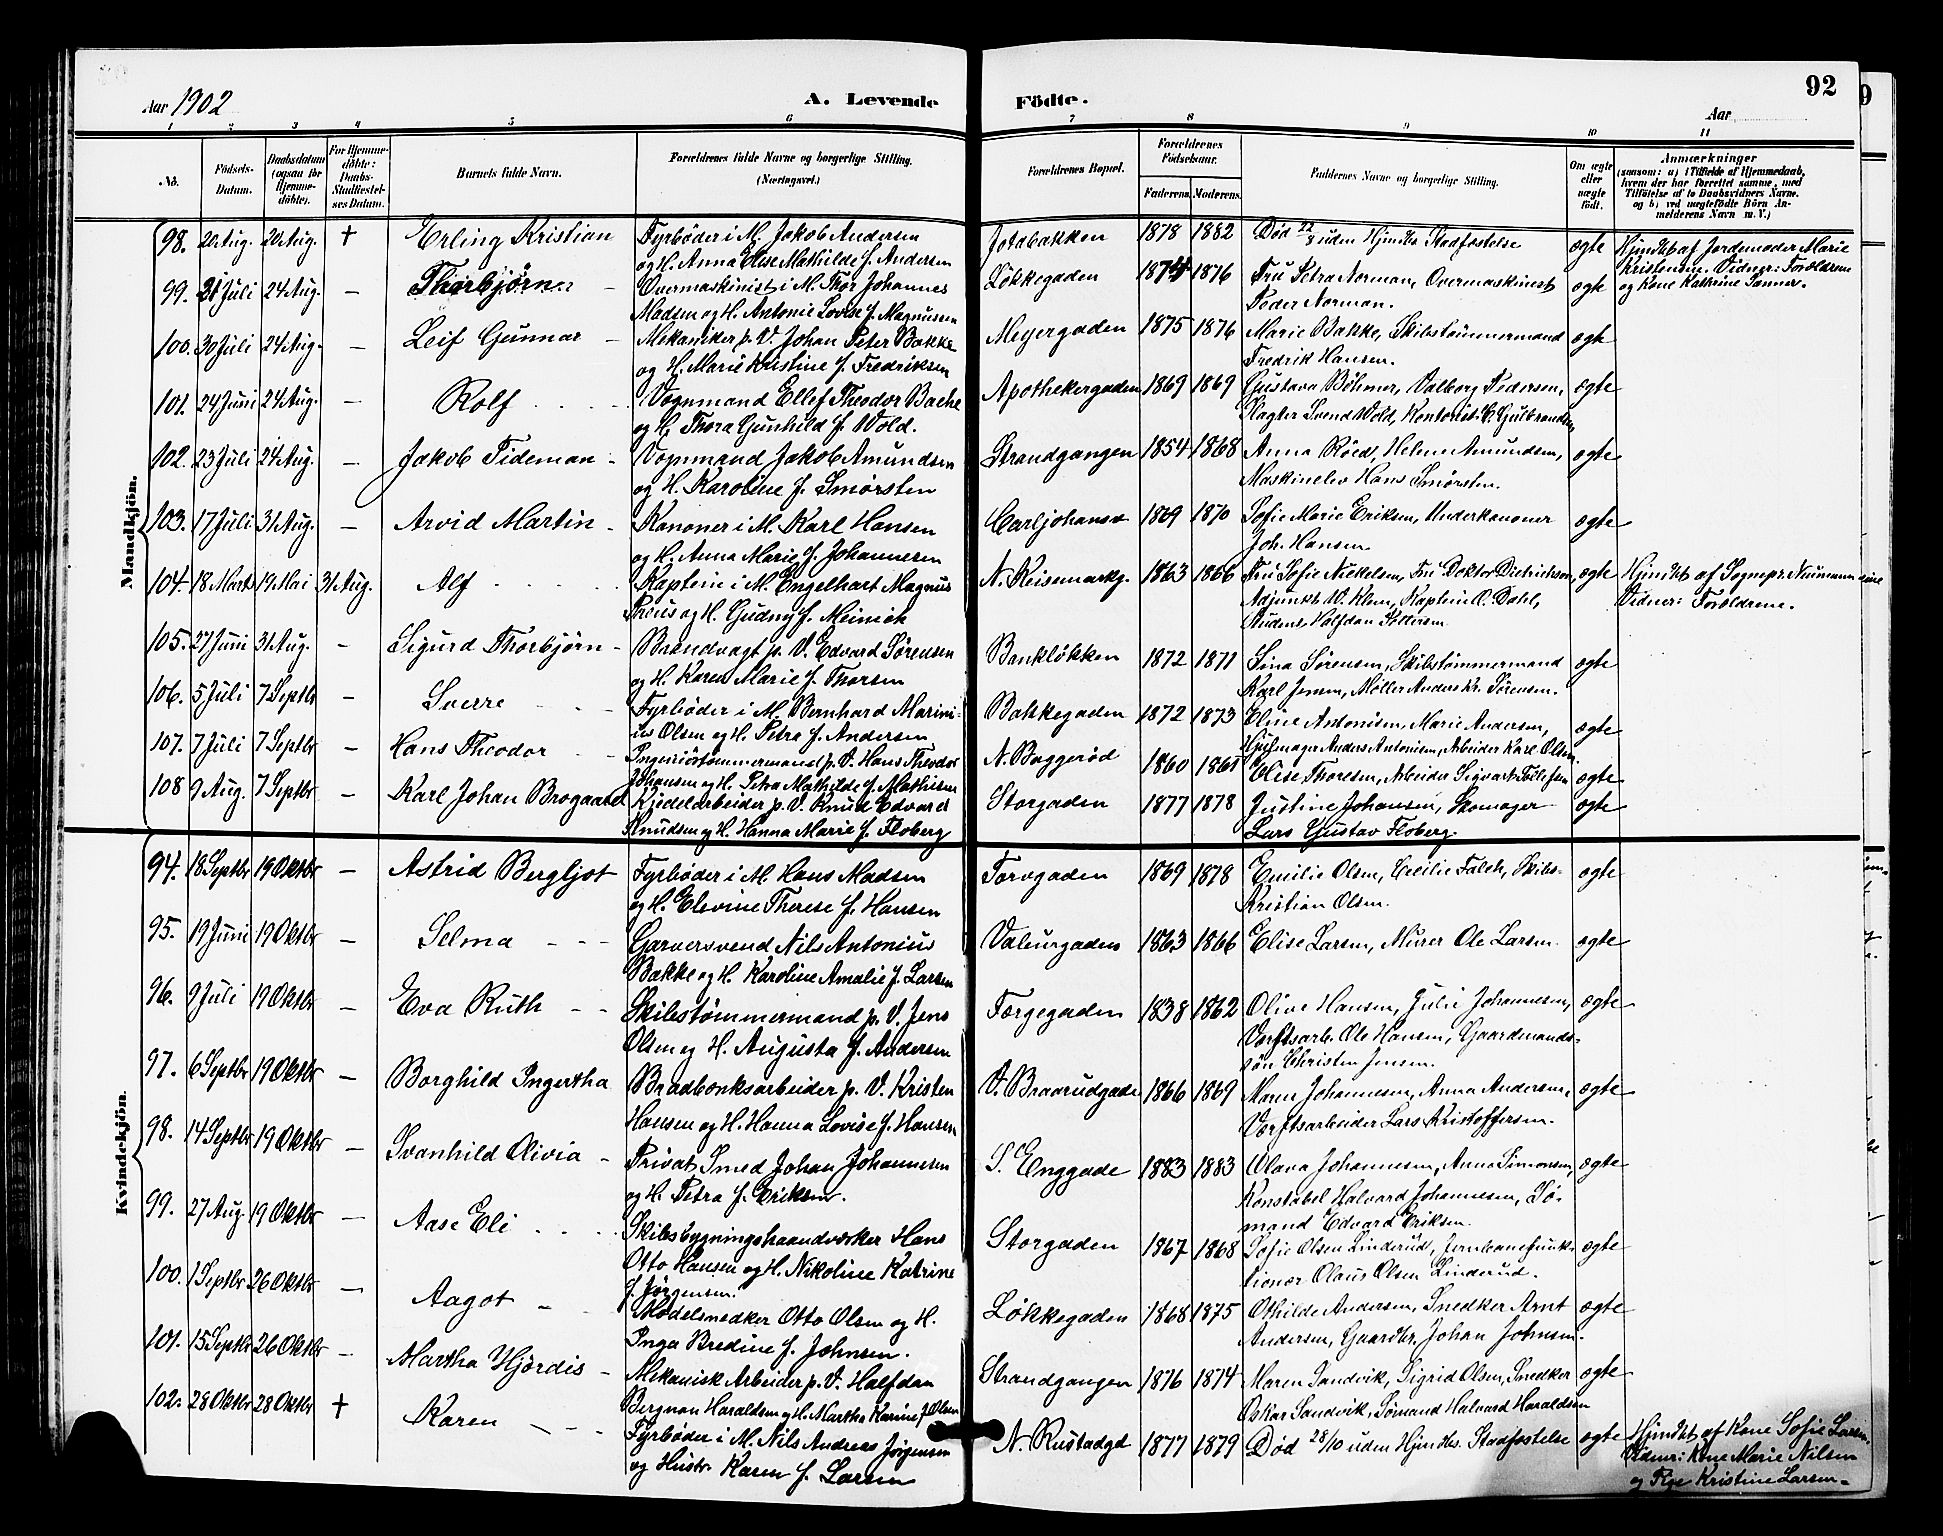 92
Aar 1902
A. Levende Födte.
Aar
1 2 3 4 5 6 7 8 9 10 11
No.
Födsels-Datum.
Daabsdatum (ogsaa for Hjemme-döbte).
For Hjemme-döbte: Daabs-Stadfæstel-ses Datum.
Barnets fulde Navn.
Forældrenes fulde Navne og borgerlige Stilling. (Næringsvei.)
Forældrenes Bopæl.
Forældrenes Födselsaar.
Faderens. Moderens.
Faddernes Navne og borgerlige Stilling.
Om ægte eller uægte født.
Anmærkninger
(saasom: a) i Tilfælde af Hjemmedaab, hvem der har forrettet samme, med Tilføielse af to Daabsvidners Navne. og b) ved uægtefödte Börn An-melderens Navn m. V.)
Mandkjön.
98. 20 Aug. 20 Aug. + Erling Kristian
Fyrbøder i M. Jakob Andersen
og H. Anna Elise Mathilde f. Andersen
1878 1882 Død 22/8 uden Hjmdbs Stadfæstelse ægte
Hjmdbt af Jordemoder Marie
Kristensen. Vidner: Forældrene
og Kone Kathrine Sanner.
99. 21 Juli 24 Aug. – Thorbjørn
Overmaskinist i M. Thor Johannes
Madsen og H. Antonie Lovise f. Magnussen
Løkkegaden 1874 1876 Fru Petra Norman, Overmaskinist
Peder Norman. ægte
100. 30 Juli 24 Aug. – Leif Gunnar
Mekaniker p. V. Johan Peter Bakke
og H. Marie Kristine f. Fredriksen
Meyergaden 1875 1876 Marie Bakke, Skibstømmermand
Fredrik Hansen. ægte
101. 24 Juni 24 Aug. – Rolf
Vognmand Ellef Theodor Bache
og H. Thora Gunhild f. Wold.
Apothekergaden 1869 1869 Gustava Böhmer, Valborg Pedersen,
Slagter Svend Wold, Kontorist C. Gulbrandsen ægte
102. 23 Juli 24 Aug. – Jakob Tideman
Vognmand Jakob Amundsen
og H. Karoline f. Smørsten
Strandgangen 1854 1868 Anna Röed, Helene Amundsen,
Maskinelev Hans Smørsten. ægte
103. 17 Juli 31 Aug. – Arvid Martin
Kanoner i M. Karl Hansen
og H. Anna Marie f. Johannesen
Carljohansv 1869 1870 Sofie Marie Eriksen, Underkanoner
Joh. Hansen. ægte
104. 18 Marts 19 Mai 31 Aug. Alf
Kaptein i M. Engelhart Magnus
og H. Gudny f. Meinich
N. Keisemarkg. 1863 1866 Fru Sofie Nickelsen, Fru Doktor Dietrichson,
Adjunkt W. Klem, Kaptein O. Dahl,
Student Halfdan Pettersen ægte
Hjmdbt af Sognepr. Neumann
Vidner: Forældrene.
105. 27 Juni 31 Aug. – Sigurd Thorbjörn
Brandvagt p. V. Edvard Sørensen
og H. Karen Marie f. Thorsen
Bankløkken 1872 1871 Lina Sørensen, Skibstømmermand
Karl Jensen, Møller Anders Kr. Sørensen. ægte
106. 5 Juli 7 Septbr – Sverre
Fyrbøder i M. Bernhard Marini-
us Olsen og H. Petra f. Andersen
Bakkegaden 1872 1873 Eline Antonisen, Marie Andersen,
Hjulmager Anders Antonisen, Arbeider Karl Olsen ægte
107. 7 Juli 7 Septbr – Hans Theodor
Ingeniörtömmermand p. V. Hans Theodor
Johansen og H. Petra Mathilde f. Mathisen
N. Baggerød 1860 1861 Olise Thoresen, Arbeider Sigvart ægte
108 9 Aug. 7 Septbr – Karl Johan Brogaard
Kjedelarbeider p. V. Knud Edvard
Knudsen og H. Hanna Marie f. Floberg
Storgaden 1877 1878 Justine Johansen, Skomager
Lars Gustav Floberg. ægte
Kvindekjön.
94. 18 Septbr 19 Oktbr – Astrid Bergljot
Fyrbøder i M. Hans Madsen
og H. Elevine Therese f. Hansen
Torvgaden 1869 1878 Emilie Olsen, Cecilie Falch, Skibs-
Kristian Olsen. ægte
95. 19 Juni 19 Oktbr – Selma
Garversvend Nils Antonius
Bakke og H. Karoline Amalie f. Larsen
Valeurgaden 1863 1866 Elise Larsen, Murer Ole Larsen. ægte
96. 9 Juli 19 Oktbr – Eva Ruth
Skibstømmermand p. V. Jens
Olsen og H. Augusta f. Andersen
Færgegaden 1838 1862 Olive Hansen, Julie Johannesen,
Værftsarb. Ole Hansen, Gaardmands-
søn Christen Jensen. ægte
97. 6 Septbr 19 Oktbr – Borghild Ingertha
Bradbænksarbeider p. V. Kristen
Hansen og H. Hanna Lovise f. Hansen
V. Braarudgade 1866 1869 Maren Johannesen, Anna Andersen,
Værftsarbeider Lars Kristoffersen. ægte
98. 14 Septbr 19 Oktbr – Svanhild Olivia
Privat Smed Johan Johannesen
og H. Petra f. Eriksen.
S. Enggade 1883 1883 Olava Johannesen, Anna Simonsen,
Konstabel Halvard Johannesen, Sø-
mand Edvard Eriksen. ægte
99. 27 Aug. 19 Oktbr – Aase Eli
Skibsbygningshaandværker Hans
Otto Hansen og H. Nikoline Katrine
f. Jørgensen.
Storgaden 1867 1868 Sofie Olsen Linderud, Jernbanefunk-
tionær Olaus Olsen Linderud. ægte
100. 1 Septbr 26 Oktbr – Aagot
Modelsnedker Otto Olsen og H.
Inga Bredine f. Johnsen.
Løkkegaden 1868 1875 Othilde Andersen, Snedker Arnt
Andersen, Gaardbr. Johan Johnsen. ægte
101. 15 Septbr 26 Oktbr – Martha Hjørdis
Mekanisk Arbeider p. V. Halfdan
Bergman Haraldsen og H. Martha Karine f. Olsen
Strandgangen 1876 1874 Maren Sandvik, Sigrid Olsen, Snedker
Oskar Sandvik, Sømand Halvard Haraldsen ægte
102. 28 Oktbr 28 Oktbr + Karen
Fyrbøder i M. Nils Andreas Jørgensen
og Hustr. Karen f. Larsen
N. Rustadgd 1877 1879 Død 28/10 uden Hjmdbs. Stadfæstelse ægte
Hjmdbt af Kone Sofie Larsen,
Vidner: Kone Marie Nilsen
og Pige Kristine Larsen.